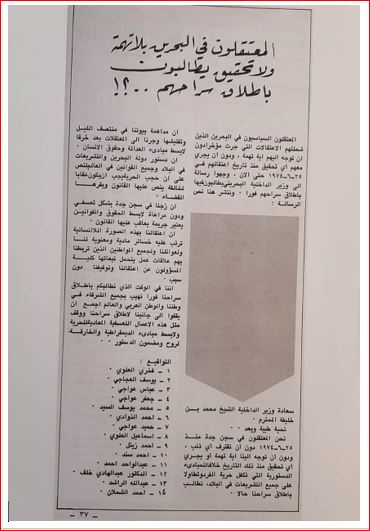 المعتقلون في البحرين بلا تهمة
ولا تحقيق يطالبون
باطلاق سراحهم ..؟!
المعتقلون السياسيون في البحرين الذين
شملتهم الاعتقالات التي جرت مؤخرا دون
ان توجه اليهم اية تهمة ، ودون ان يجري
معهم أي تحقيق منذ تاريخ اعتقالهم في
٢٥-٦-١٩٧٤ حتى الان ، وجهوا رسالة
الى وزير الداخلية البحريني يطالبون فيها
باطلاق سراحهم فورا . وننشر هنا نص
الرسالة :
سعادة وزير الداخلية الشيخ محمد بن
خليفة المحترم .
تحية طيبة وبعد ..
نحن المعتقلون في سجن جدة منذ
٢٥-٦-١٩٧٤ دون ان نقترف أي ذنب ،
ودون ان توجه الينا اية تهمة أو يجري
أي تحقيق منذ تلك التاريخ خلافا للمبادىء
الدستورية التي تكفل حرية الفرد وتطاولا
على جميع التشريعات في البلاد، نطالب
باطلاق سراحنا حالا .
ان مداهمة بيوتنا في منتصف الليل
وتفتيشها وجرنا الى المعتقلات يعد خرقا
لابسط مبادىء العدالة وحقوق الانسان .
ان دستور دولة البحرين والتشريعات
في البلاد وجميع القوانين في العالم تنص
على أن حجب الحرية يجب ان يكون عقابا
لمخالفة ينص عليها القانون ويقرها
القضاء .
ان زجنا في سجن جدة بشكل تعسفي
ودون مراعاة لابسط الحقوق والقوانين
يعتبر جريمة يعاقب عليها القانون .
ان اعتقالنا بهذه الصورة اللاانسانية
ترتب عليه خسائر مادية ومعنوية لنا
ولعوائلنا ولجميع المواطنين الذين تربطنا
بهم علاقات عمل يتحمل تبعاتها كلية
المسؤولون عن اعتقالنا وتوقيفنا دون
سبب .
اننا في الوقت الذي نطالبكم باطلاق
سراحنا فورا نهيب بجميع الشرفاء في
وطننا والوطن العربي والعالم اجمع ان
يقفوا الى جانبنا لاطلاق سراحنا ووقف
مثل هذه الاعمال التعسفية المعادية للحرية
ولابسط مبادىء الديمقراطية والخارقة
لروح ومضمون الدستور .
التواقيع :
١ – فخري العلوي
٢ – يوسف العجاجي
٣ – عباس عواجي
٤ – جعفر عواجي
٥ – محمد يوسف السيد
٦ – احمد الذوادي
٧ – حميد عواجي
٨ – اسماعيل العلوي
٩ – احمد زينل
١٠ – احمد سند
١١ – عبدالواحد احمد
١٢ – الدكتور عبدالهادي خلف
١٣ – عبدالله الراشد
١٤ – احمد الشملان
– ٣٧ –